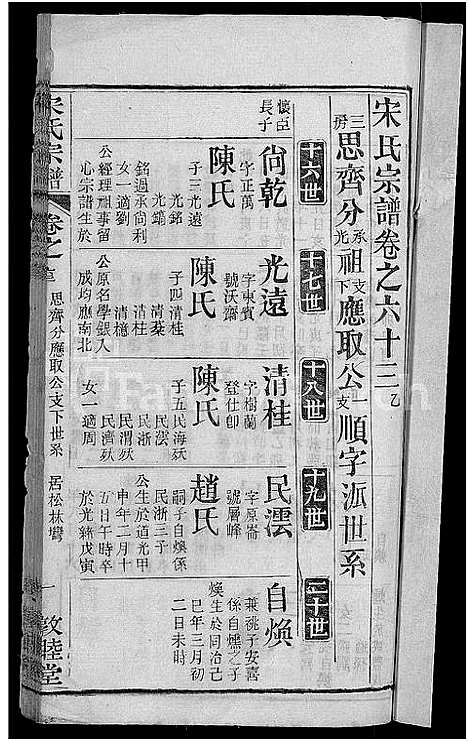 宋氏宗譜卷之六十三乙
三房思齊分承光祖支下應取公一支順字派世系
十六世
十七世
十八世
十九世
二十世
懷臣
長子
尙乾
字正萬
陳氏
子三光遠
光銘
光鏑
銘過承尙利
女一適劉
公經理祠事留
心宗譜生於
光遠
字東賓
號沃齋
陳氏
子四清桂
清棻
清桂
清檍
公原名學銀入
成均應南北
清桂
字樹蘭
登仕郎
陳氏
子五民海殀
民澐
民浙
民渭殀
民濟殀
女一適周
民澐
字原崙
號層峰
趙氏
嗣子自煥係
民浙三子
公生於道光甲
申年二月十
五日午時卒
於光緖戊寅
自煥
兼祧子安喜
係自熞之子
煥生於同治己
巳年三月初
二日未時
宋氏宗譜
卷之
思齊分應取公支下世系
居松林彎
一
敦睦堂